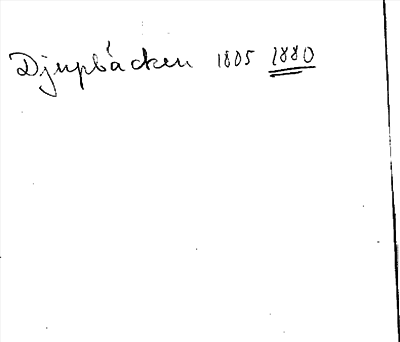 Djupbäcken 1805 1880